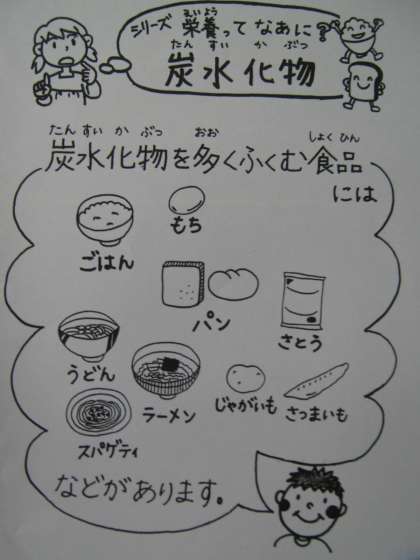 シリーズ 栄養ってなあに?
えいよう
炭水化物
たん すい か ぶつ
炭水化物を多くふくむ食品
たん すい か ぶつ おお しょく ひん
には
ごはん
もち
パン
さとう
うどん
ラーメン
じゃがいも
さつまいも
スパゲティ
などがあります。